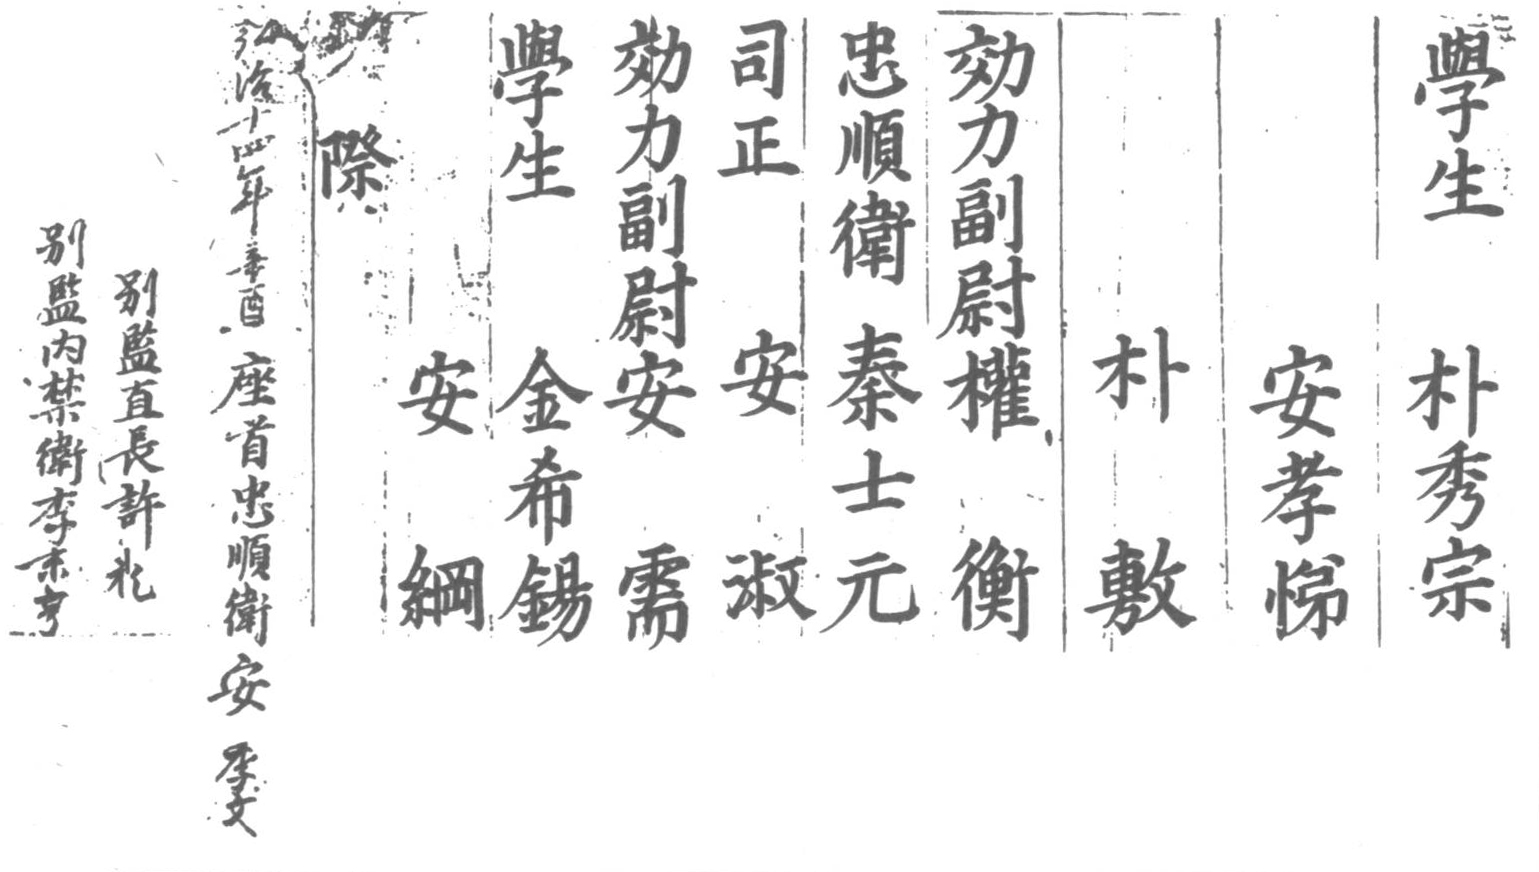 學生 朴秀宗
安孝悌
朴敷
効力副尉權衡
忠順衛秦士元
司正 安淑
効力副尉安需
學生 金希錫
安綱
際
弘治十四年辛酉座首忠順衛安季文
別監直長許
別監内禁衛李亨